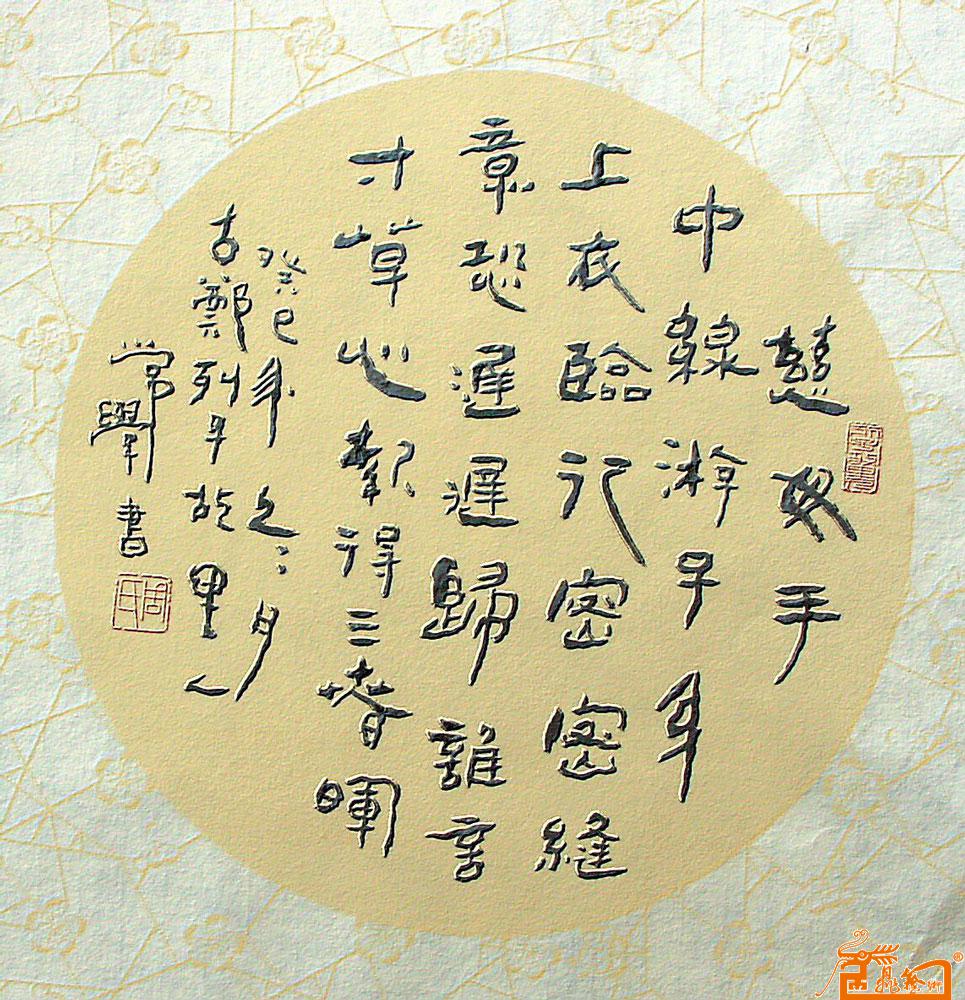 慈母手
中線游子身
上衣臨行密密縫
意恐遲遲歸誰言
寸草心報得三春暉
癸巳年冬月
古鄭列子故里人
常舉書